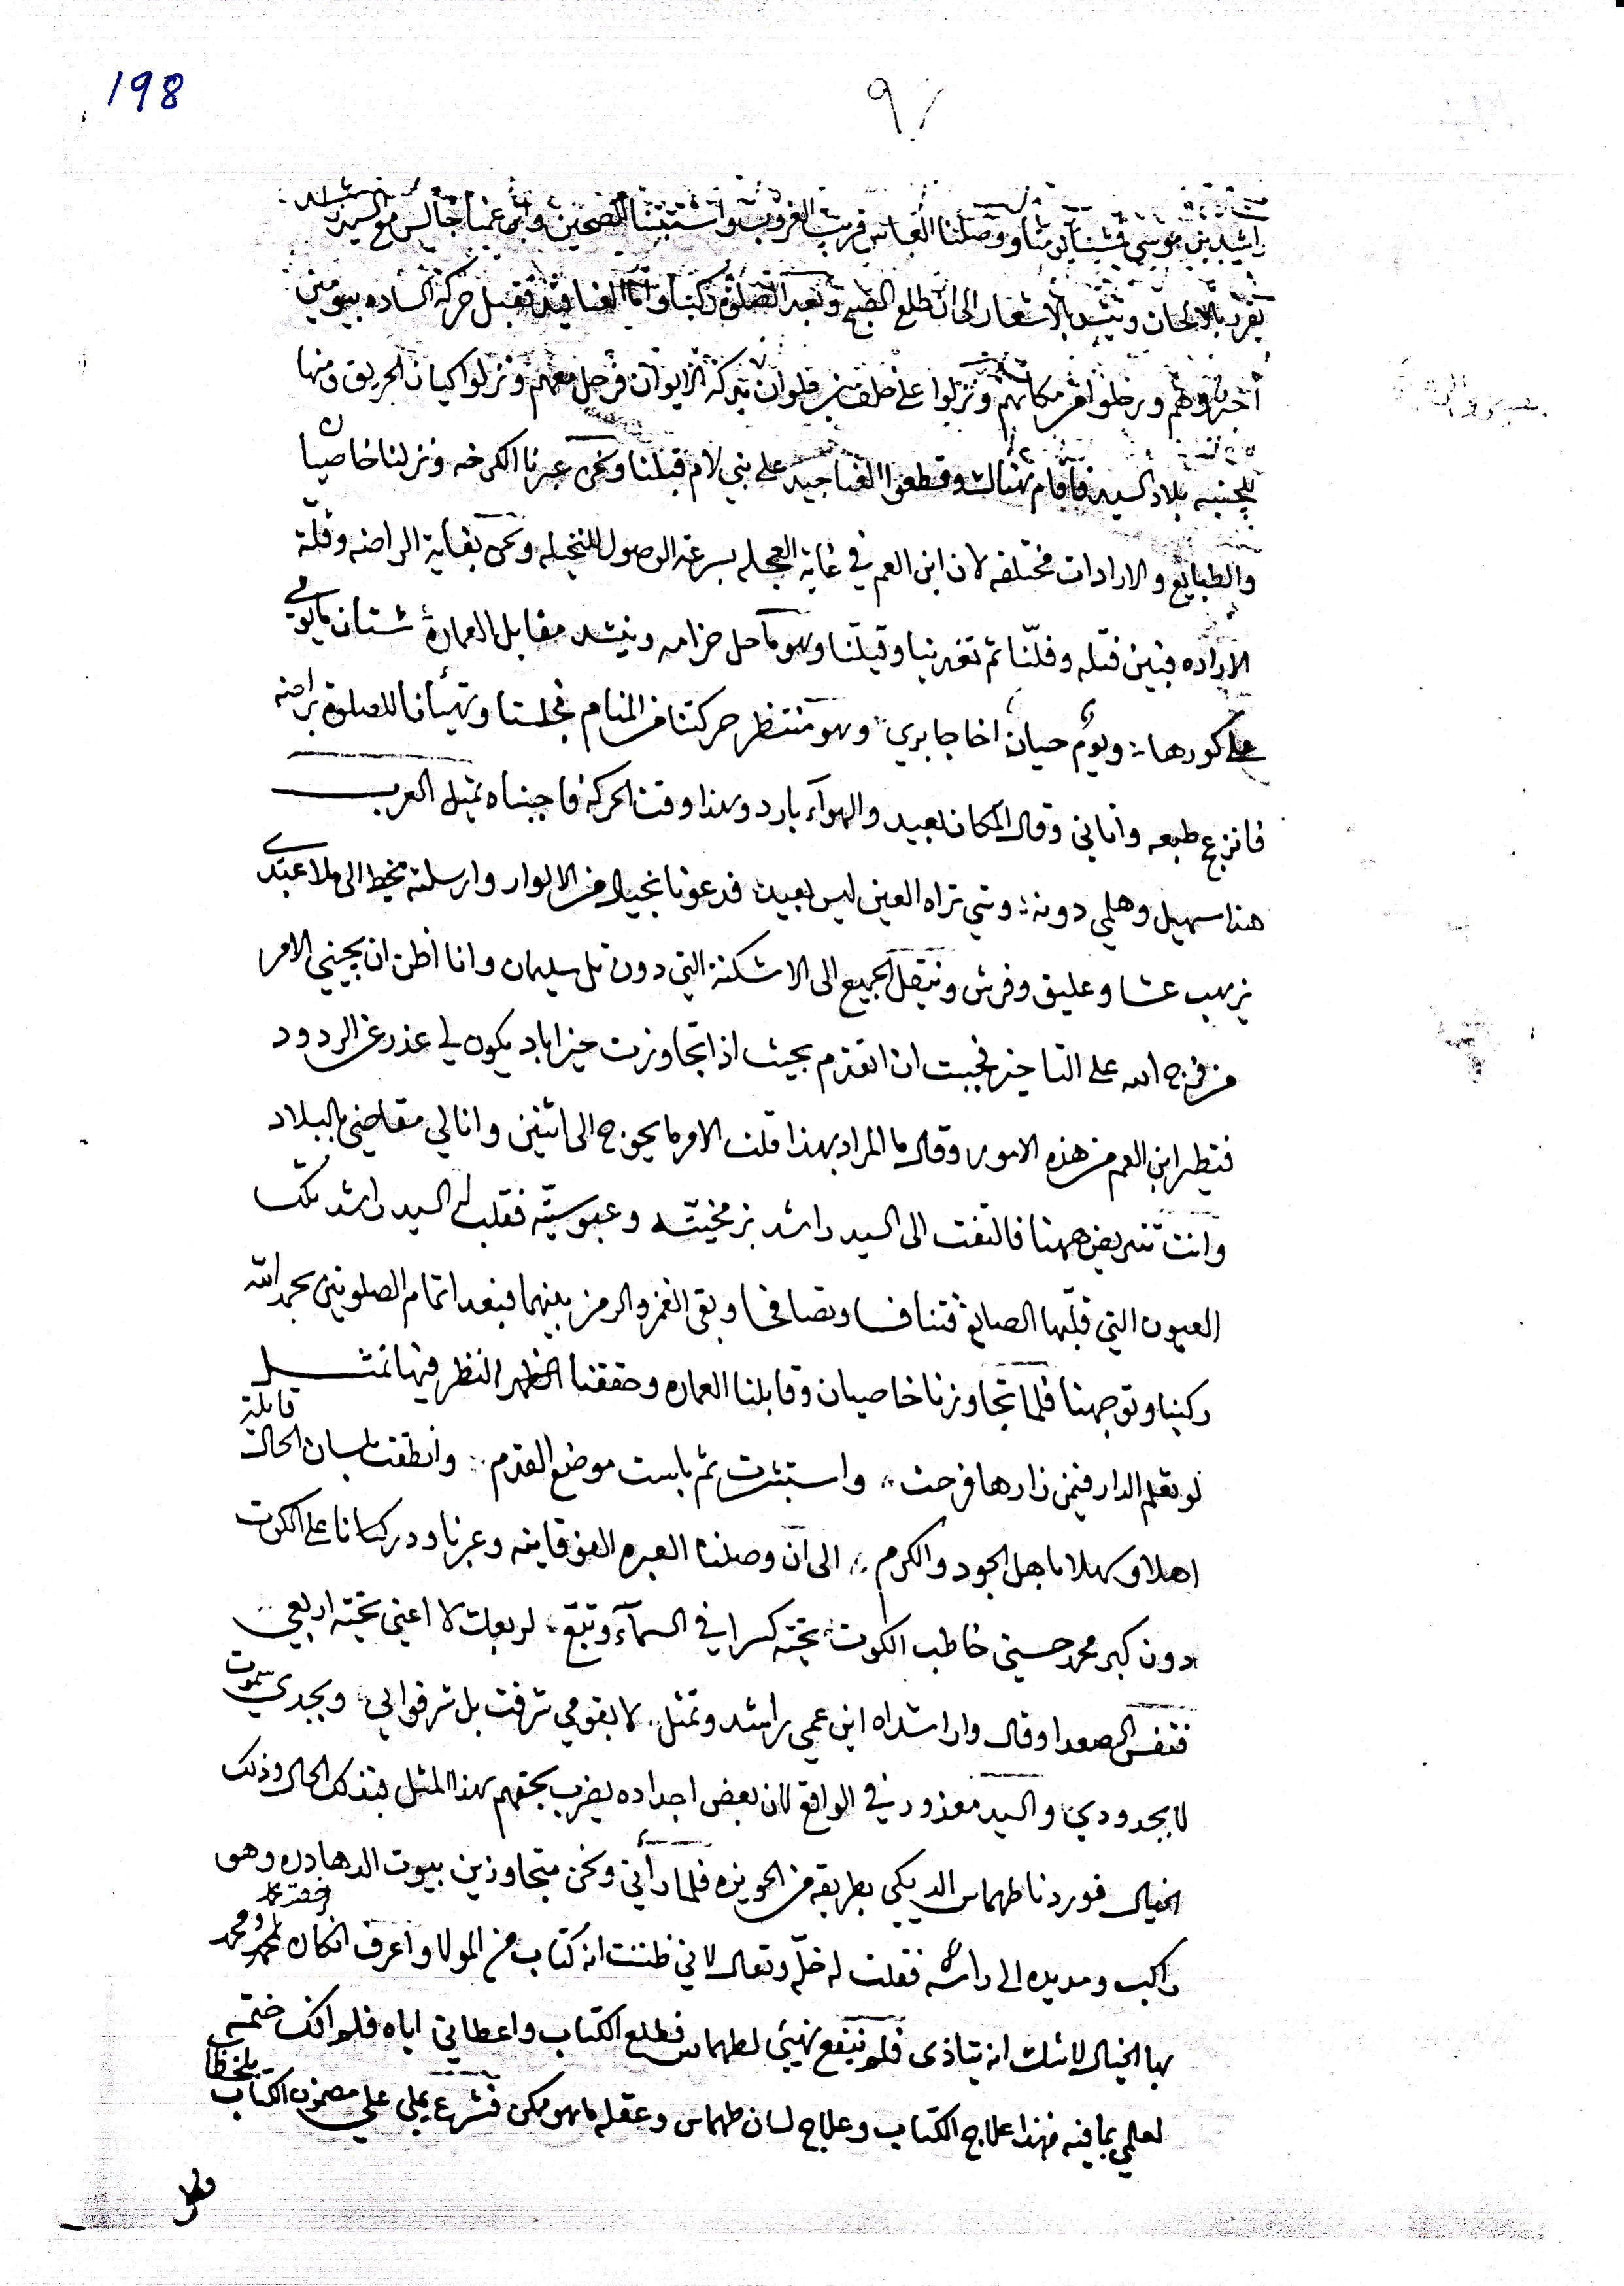 198
٩١
راشد بن موسى فشينا يومنا ووصلنا العباس قريب الغروب واستبتنا مصبحين وابن عمنا جالس مع السيد راشد
يغرد بالالحان وينشد بالاشعار الى ان طلع الصبح وبعد الصلوة ركبنا واما الغنافيد فقبل حركة الساده بيومين
اخبروهم ورحلوا من مكانهم ونزلوا على خلف بن علوان بتركة الايوان فرحل معهم ونزلوا كيان الحريق ومنها
للجنبه بلاد السيد فاقام هناك وقطعوا الغناجيد على بني لام قبلنا ونحن عبرنا الكرخه ونزلنا خاصيان
والطبايع والارادات مختلفه لان ابن العم في غاية العجله بسرعة الوصول للنخيله ونحن بغاية الراضه وقلة
الاراده فبتين قتله وفلنا ثم تغدينا وقيلنا وهو ما حل حزامه وينشد مقابل العمارة شتان ما يومي
على كورها ؛ ويوم حيان اخا جابري ؛ وهو منتظر حركتنا من المنام فجلسنا وتهيأنا للصلوة براضه
فانزعج طبعه واتاني وقال المكان بعيد والهواء بارد وهذا وقت الحركة فاجبناه بمثل العرب
هذا سهيل وهلي دونه ؛ وشي تراه العين ليس بعيد ؛ فدعونا بخيال من الالوار وارسلته بخط الى ملا عبدي
يزهب عشا وعليق وفرش وننتقل الجميع الى الاشكنة التي دون تل سليمان وانا اظن ان يجيني الامر
من فرج الله على التاخير فحبيت ان اتقدم بحيث اذا تجاوزت خيراباد يكون لي عذر عن الردود
فتطير ابن العم من هذه الامور وقال ما المراد بهذا قلت الامر ما يحوج الى اثنين وانا لي مقاضي بالبلاد
وانت تتريض مهنا فالتفت الى السيد راشد بزمخيته وعبوسيته فقلب له السيد راشد تلك
العيون التي قلبها الصايغ فتنافسا وتصافحا وبقى الغمز والرمز بينهما فبعد اتمام الصلوتين بحمد الله
ركبنا وتوجهنا فلما تجاوزنا خاصيان وقابلنا العماره وحققنا النظر فيها تمثل
لو تعلم الدار فيمن زارها فرحت ؛ واستبشرت ثم باست موضع القدم ؛ وانطقت بلسان الحال قايلة
اهلا وسهلا باهل الجود والكرم ؛ الى ان وصلنا العبره الفوقانيه وعبرنا ودركنانا على الكوت
دون كبر محمد حسيني خاطب الكوت ؛ تحته كسرا في السماء وتبع ؛ لربعك لا اعني تحته اربعي
فتنفس الصعدا وقال وا راشداه ابن عمي راشد وتمثل ؛ لا بقومي شرفت بل شرفوا بي ؛ وبجدي سموت
لا بجدودي ؛ والسيد معذور في الواقع لان بعض اجداده يضرب بحقهم بهذا المثل فبتذك الحال وذلك
الخيال فوردنا طهماس الديكي بطريقه من الحويزه فلما رآني ونحن متجاوزين بيوت الدهادره وهو
راكب ومد يده الى راسه فقلت له خله وتعال لاني ظننت انه كتاب من المولا واعرف انكان محمد حضر
بها الخيال لا شك انه يتاذى فلم ينفع نهيي لطهماس فطلع الكتاب واعطاني اياه فلم افك ختمه
لعلمي بما فيه فهذا علاج الكتاب وعلاج لسان طهماس وعقله ما هو ممكن فشرع يملي علي مضمون الكتاب